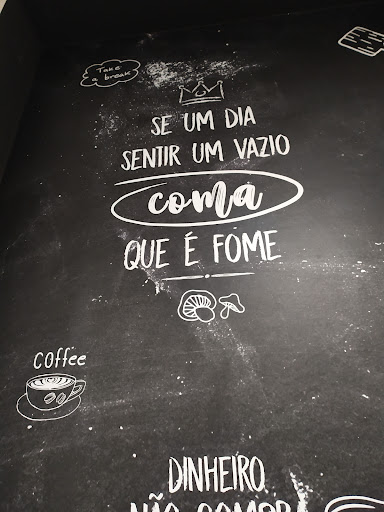 Take
a break
SE UM DIA
SENTIR UM VAZIO
coma
QUE É FOME
coffee
DINHEIRO
NÃO COMPRA